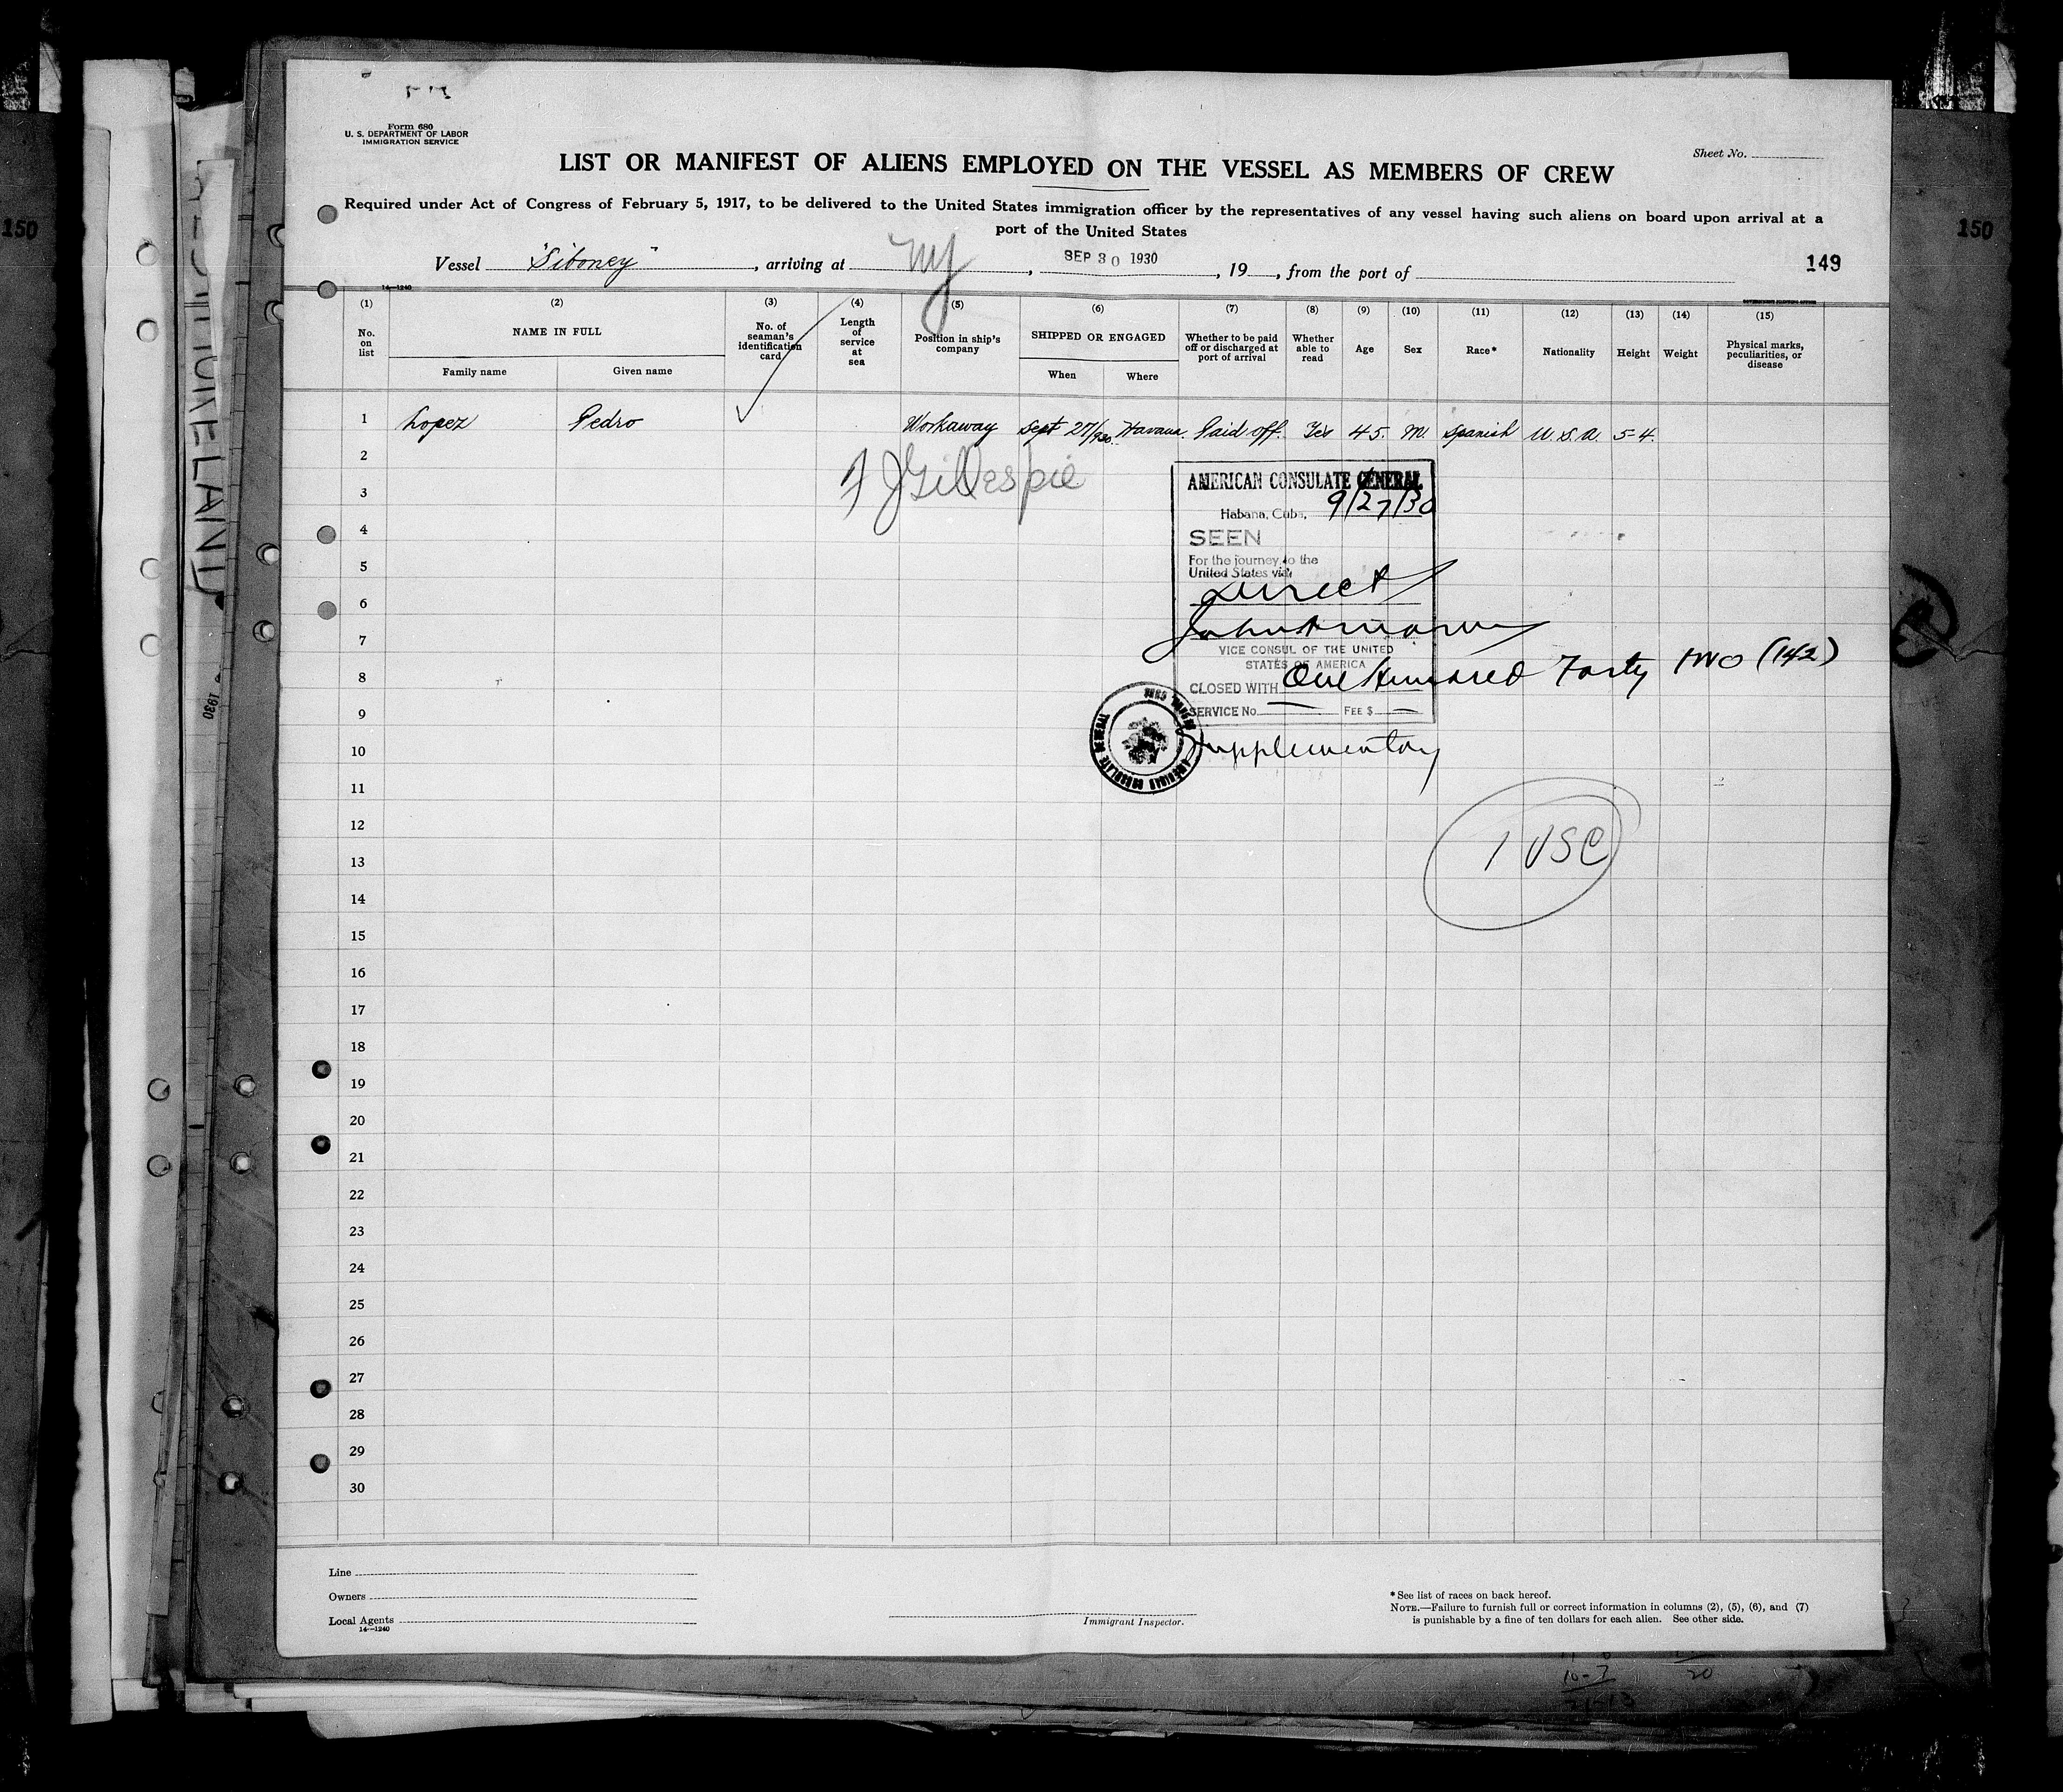 Form 680
U. S. DEPARTMENT OF LABOR
IMMIGRATION SERVICE
Sheet No.
LIST OR MANIFEST OF ALIENS EMPLOYED ON THE VESSEL AS MEMBERS OF CREW
Required under Act of Congress of February 5, 1917, to be delivered to the United States immigration officer by the representatives of any vessel having such aliens on board upon arrival at a
port of the United States
Vessel "Siboney", arriving at NY, SEP 30 1930, 19, from the port of
149
150
150
14—1240
(1) (2) (3) (4) (5) (6) (7) (8) (9) (10) (11) (12) (13) (14) (15)
No. on list
NAME IN FULL
Family name
Given name
No. of seaman's identification card
Length of service at sea
Position in ship's company
SHIPPED OR ENGAGED
When
Where
Whether to be paid off or discharged at port of arrival
Whether able to read
Age
Sex
Race*
Nationality
Height
Weight
Physical marks, peculiarities, or disease
1 Lopez Pedro Workaway Sept 27/930. Havana. Paid off. Yes 45. M. Spanish U.S.A. 5-4.
2
F J Gillespie
3
4
5
6
7
8
9
10
11
12
13
14
15
16
17
18
19
20
21
22
23
24
25
26
27
28
29
30
AMERICAN CONSULATE GENERAL
Habana, Cuba, 9/27/30
SEEN
For the journey to the
United States via
Direct
VICE CONSUL OF THE UNITED
STATES OF AMERICA
CLOSED WITH One Hundred Forty two (142)
SERVICE No. FEE $
Supplementary
AMERICAN CONSULATE GENERAL
1 USC
Line
Owners
Local Agents
14—1240
Immigrant Inspector.
*See list of races on back hereof.
NOTE.—Failure to furnish full or correct information in columns (2), (5), (6), and (7)
is punishable by a fine of ten dollars for each alien. See other side.
10-7
20
1930